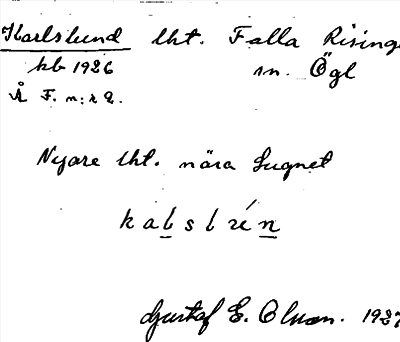 Karlslund lht. Falla Risinge
kb 1926 sn. Ögl
Å F. n:r 2.
Nyare lht. nära Lugnet
Gustaf E. Olsson. 1927